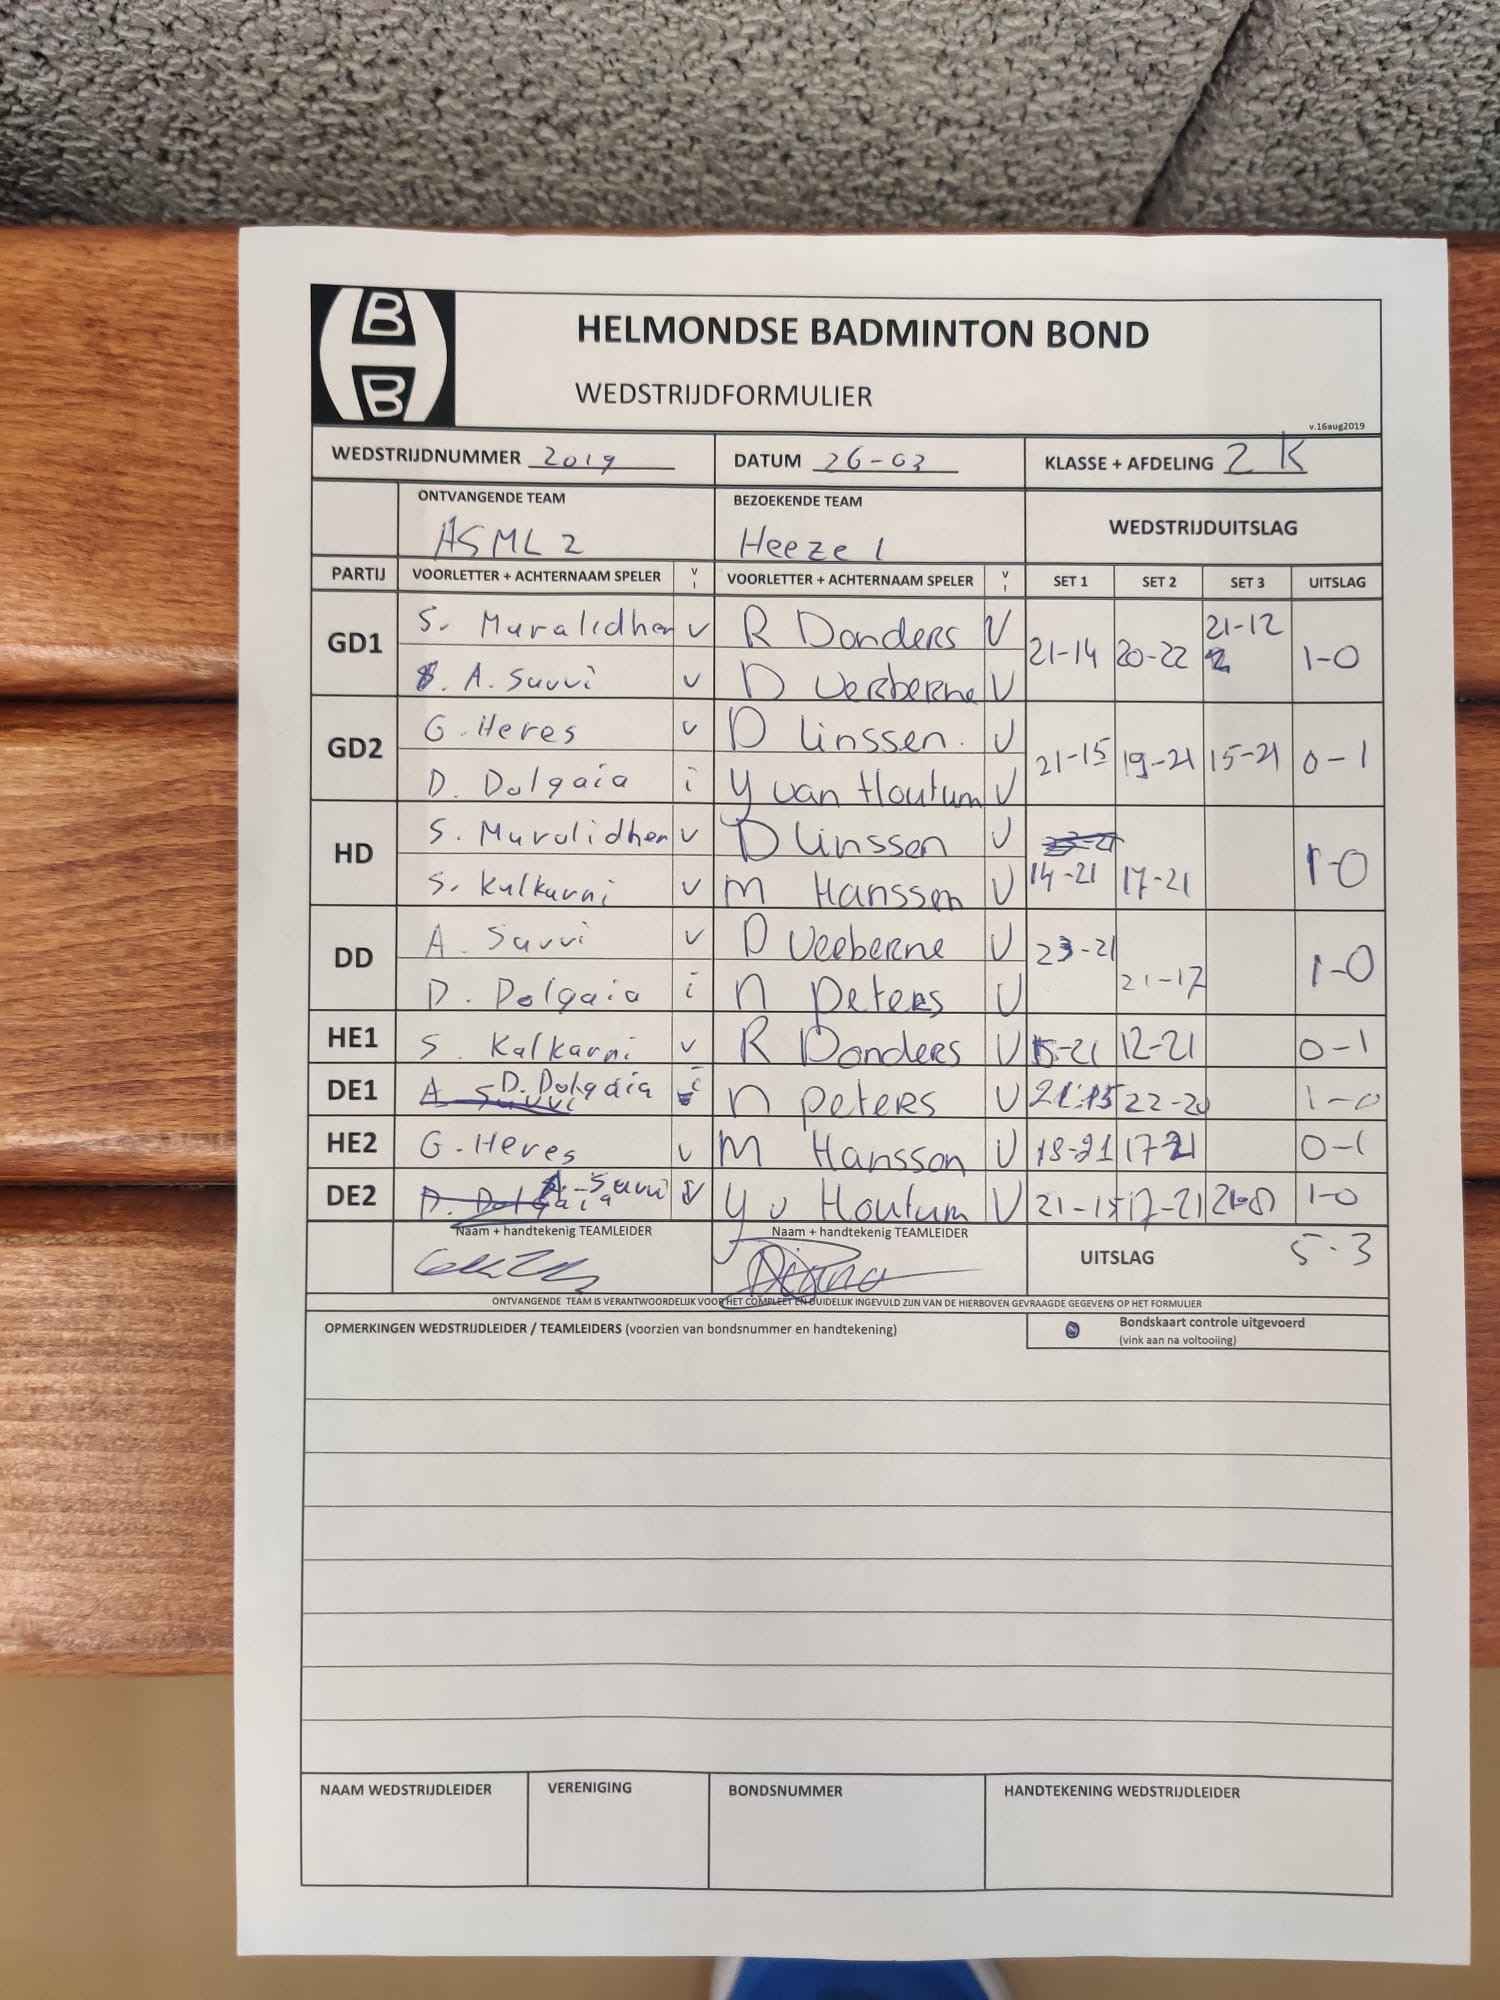 B
B
HELMONDSE BADMINTON BOND
WEDSTRIJDFORMULIER
v.16aug2019
WEDSTRIJDNUMMER 2019 DATUM 26-03 KLASSE + AFDELING 2 K
ONTVANGENDE TEAM BEZOEKENDE TEAM WEDSTRIJDUITSLAG
ASML 2 Heeze 1
PARTIJ VOORLETTER + ACHTERNAAM SPELER V I VOORLETTER + ACHTERNAAM SPELER V I SET 1 SET 2 SET 3 UITSLAG
GD1 S. Muralidher v R Donders V 21-14 20-22 21-12 1-0
A. Savvi v D Verberne V
GD2 G. Heres v D Linssen. V 21-15 19-21 15-21 0-1
D. Dolgaia i Y van Houtum V
HD S. Muralidher v D Linssen V 14-21 17-21 1-0
S. Kulkarni v M Hanssen V
DD A. Savvi v D Verberne V 23-21 21-17 1-0
D. Dolgaia i N Peters V
HE1 S. Kalkarni v R Donders V 15-21 12-21 0-1
DE1 A Savvi D. Dolgaia i N Peters V 21-15 22-20 1-0
HE2 G. Heres v M Hansson V 18-21 17-21 0-1
DE2 D. Dolgaia A. Savvi V Y v Houtum V 21-15 17-21 1-0
Naam + handtekenig TEAMLEIDER Naam + handtekenig TEAMLEIDER
UITSLAG 5-3
ONTVANGENDE TEAM IS VERANTWOORDELIJK VOOR HET COMPLEET EN DUIDELIJK INGEVULD ZIJN VAN DE HIERBOVEN GEVRAAGDE GEGEVENS OP HET FORMULIER
OPMERKINGEN WEDSTRIJDLEIDER / TEAMLEIDERS (voorzien van bondsnummer en handtekening) Bondskaart controle uitgevoerd
(vink aan na voltooiing)
NAAM WEDSTRIJDLEIDER VERENIGING BONDSNUMMER HANDTEKENING WEDSTRIJDLEIDER